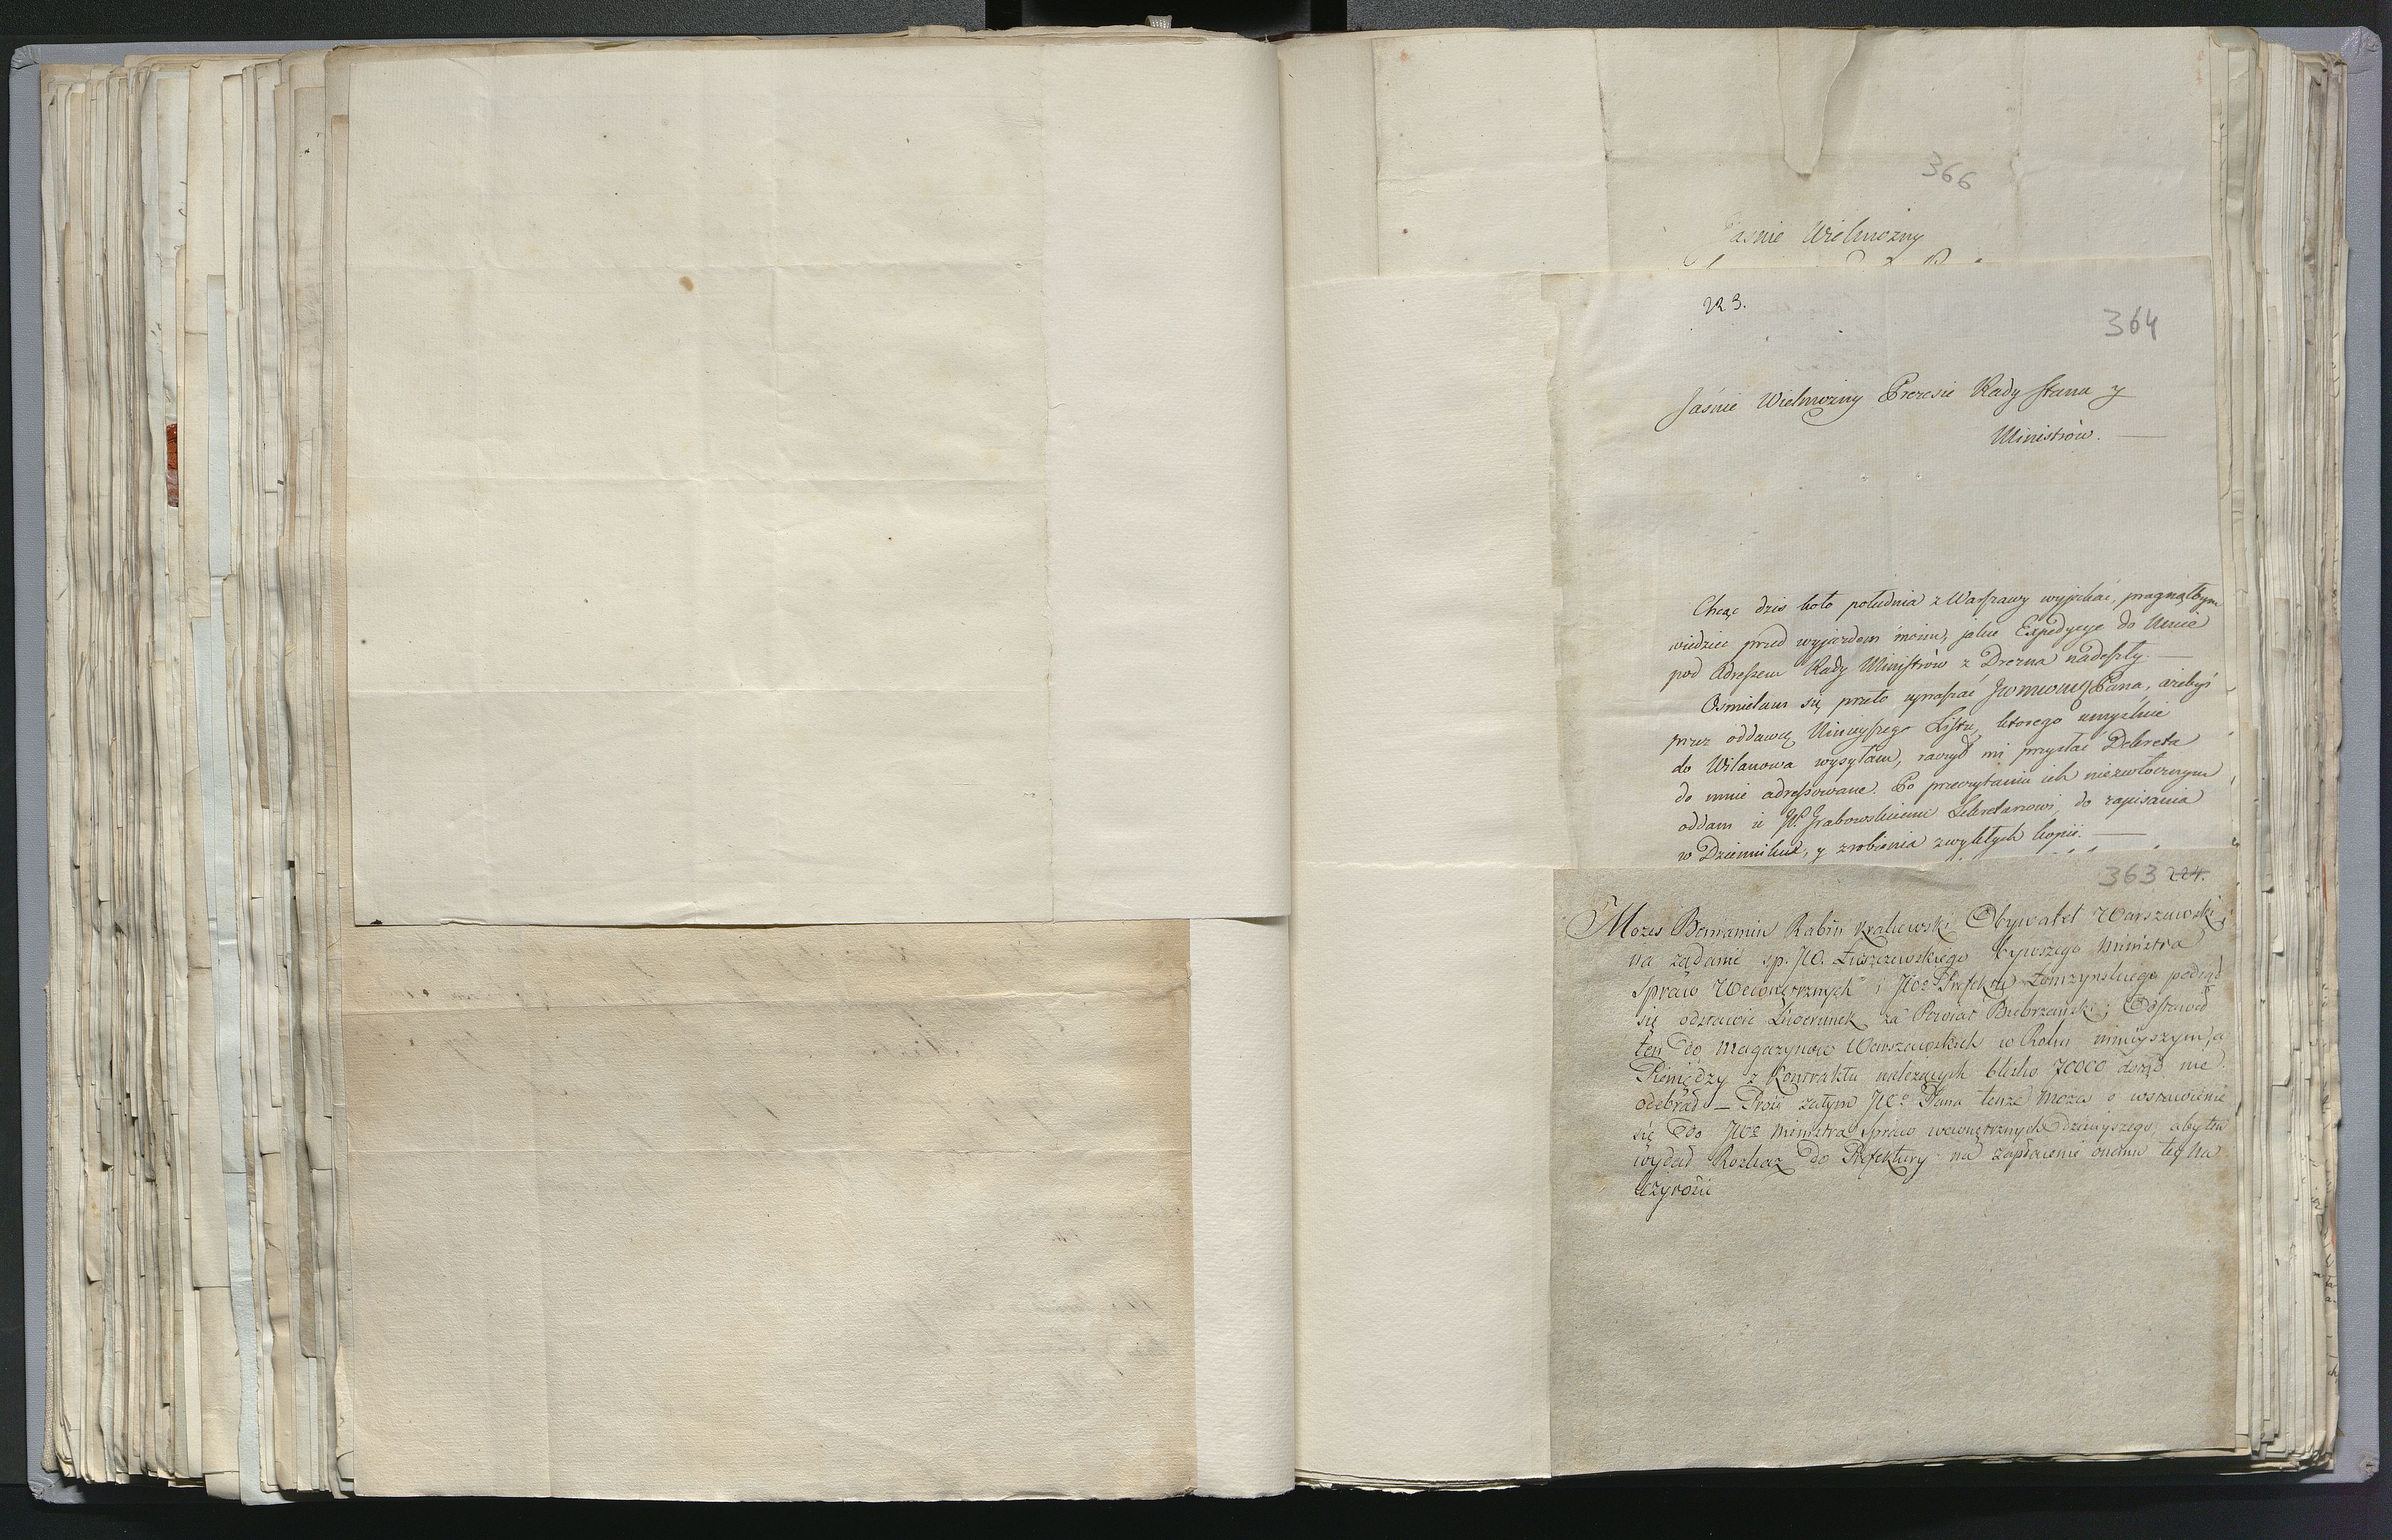 366
Jaśnie Wielmożny
223.
364
Jaśnie Wielmożny Prezesie Rady Stanu y
Ministrów. —
Chcąc dziś koło południa z Warszawy wyjechać, pragnąłbym
wiedzieć przed wyjazdem moim, jakie Expedycye do Mnie
pod Adressem Rady Ministrów z Drezna nadeszły. —
Ośmielam się przeto upraszać JWWielmoż Pana, ażebyś
przez oddawcę Ninieyszego Listu, ktorego umyślnie
do Wilanowa wysyłam, raczył mi przysłać Dekreta
do mnie adressowane. Po przeczytaniu ich niezwłocznym
oddam je JP. Grabowskiemu Sekretarzowi, do zapisania
w Dzienniku, y zrobienia zwykłych kopii. —
363 224.
Mozes Beniamin Rabin Kraliewski Obywatel Warszawski,
na żądanie sp. JW. Łuszczewskiego bywszego Ministra
Spraw Wewnętrznych i JWo Prefekta Łomżyńskiego podiął
się odstawie Liwerunek za Powiat Biebrzański; Odstawił
ten do Magazynow Warszawskich w Roku ninieyszym, a
Pieniędzy z Kontraktu należących blisko 70000 dotąd nie
odebrał — Prosi zatym JWo Pana tenże Mozes o wstawienie
się do JWo Ministra Spraw wewnętrznych dzisieyszego, aby ten
wydał Rozkaz do Prefektury na zapłacenie onemu tey Na
leżytości